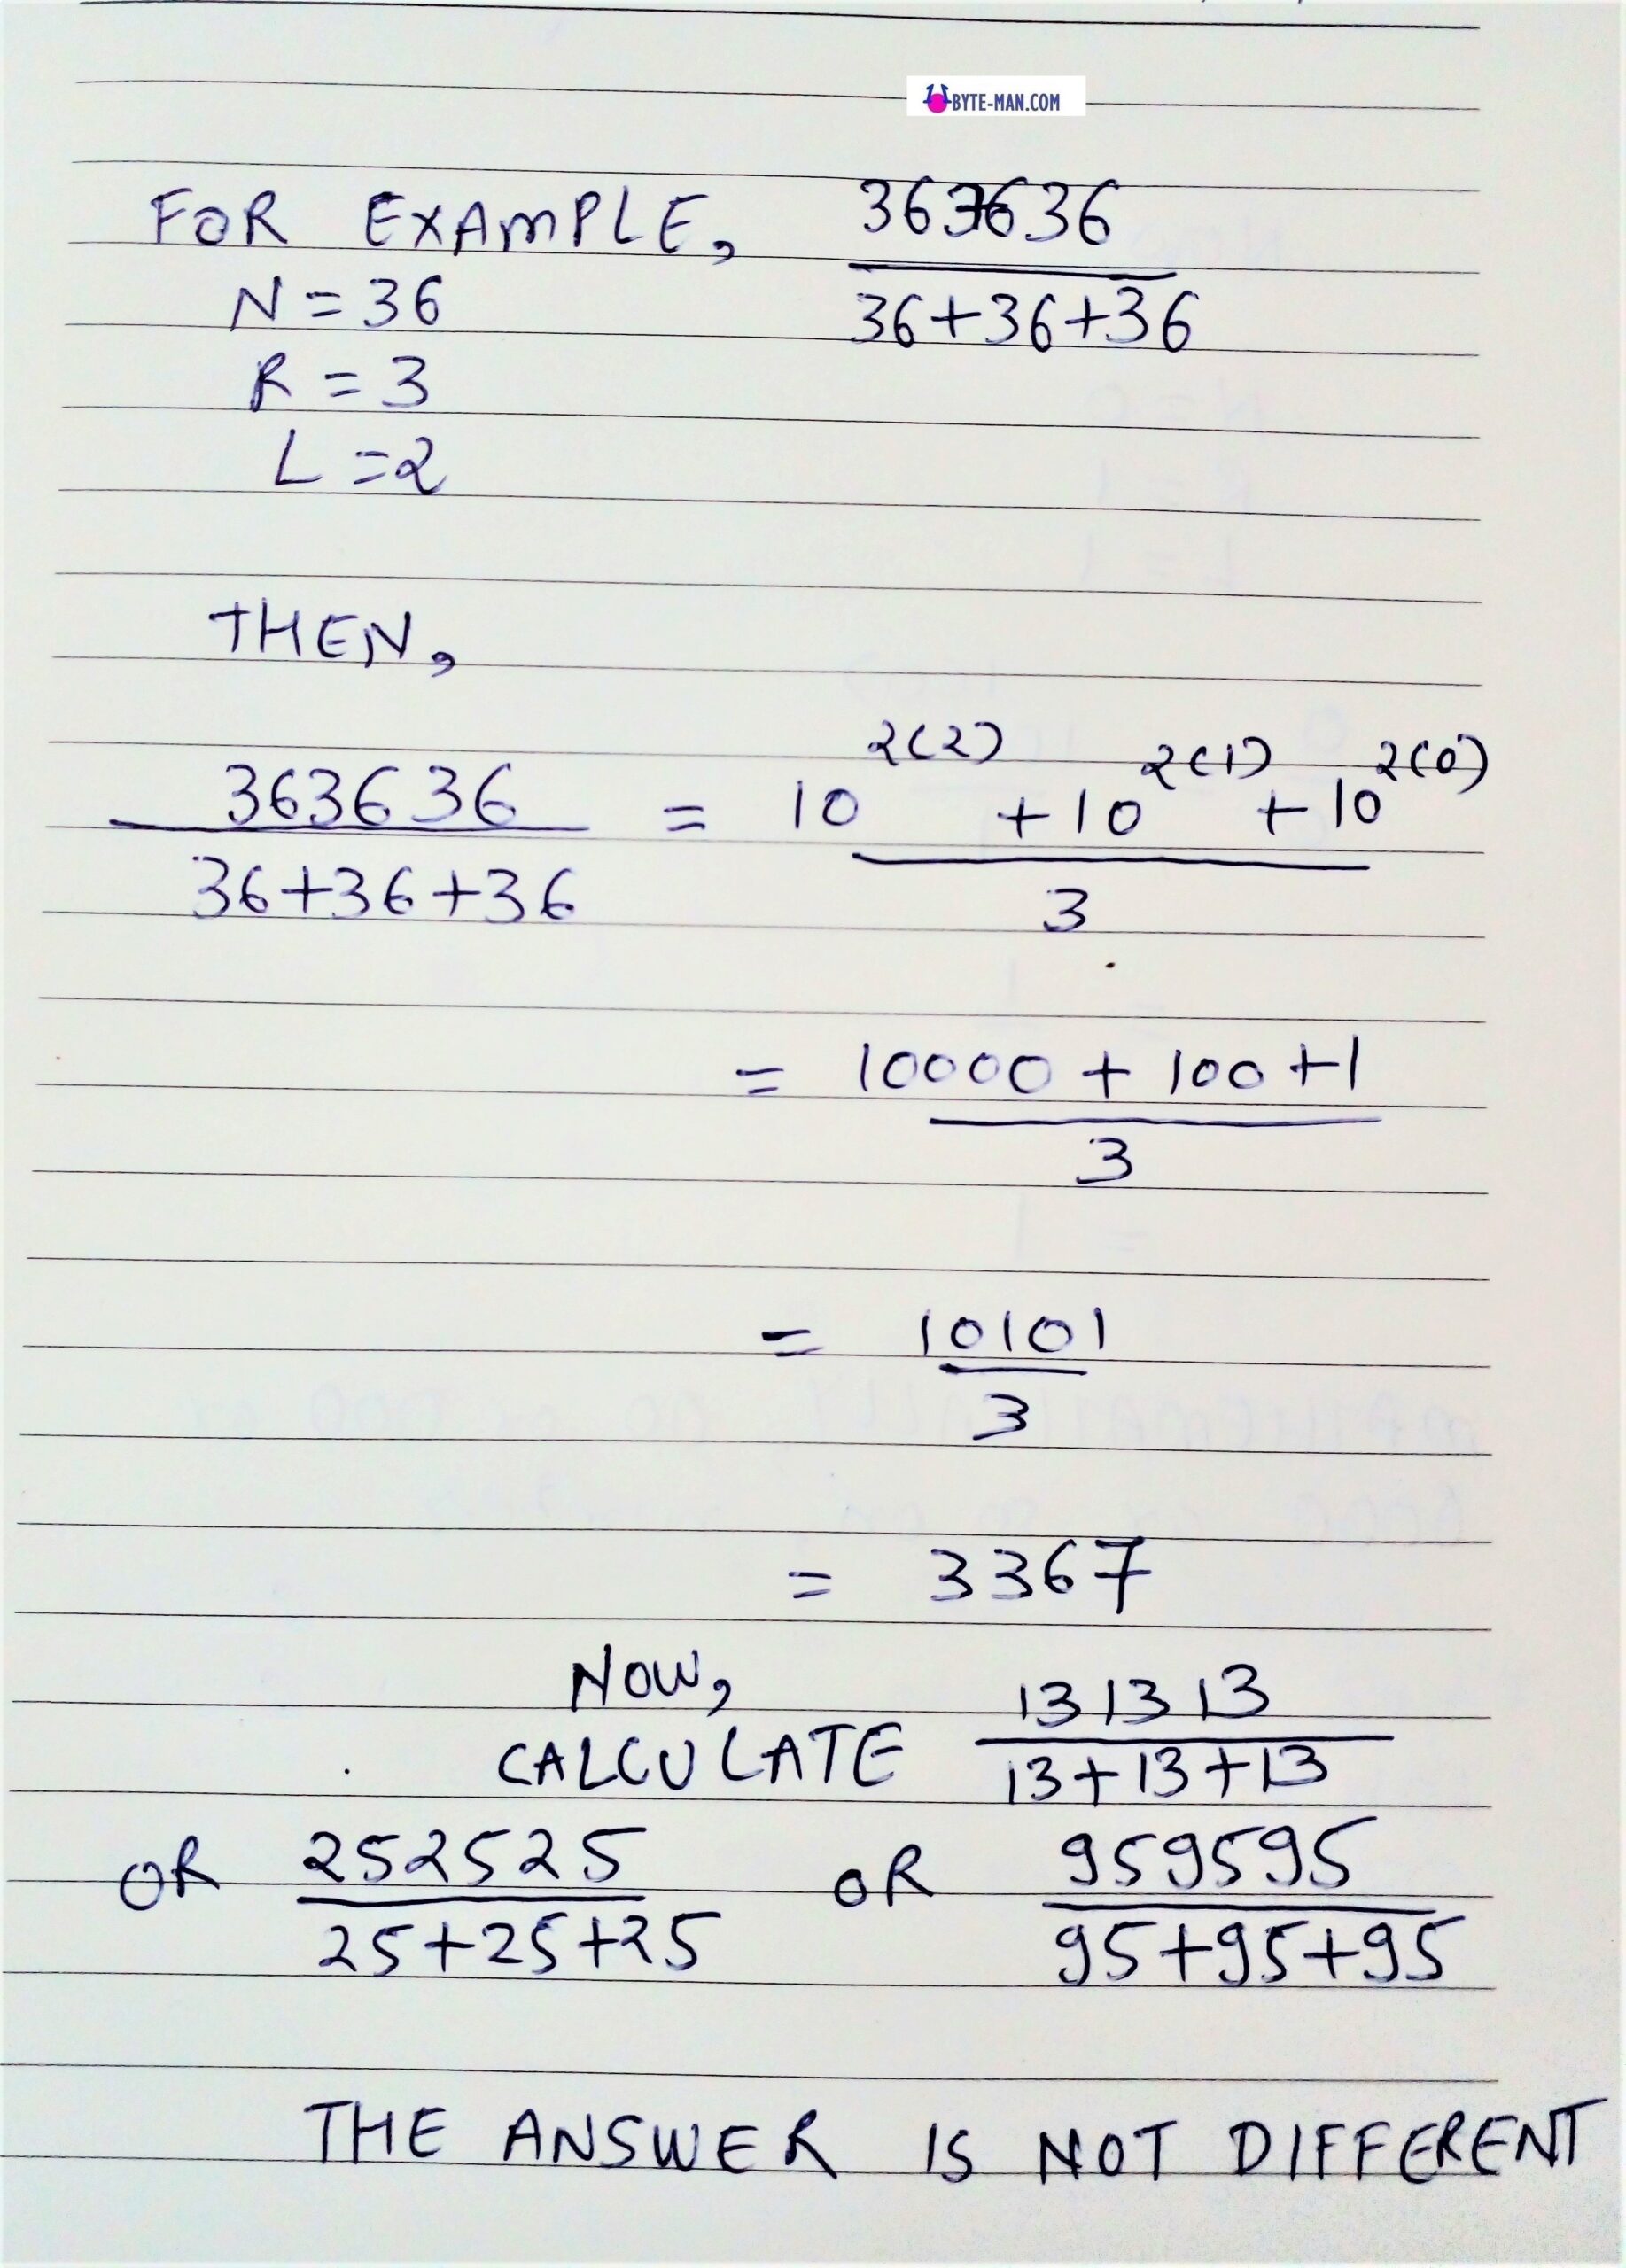 BYTE-MAN.COM
FOR EXAMPLE, 363636
36+36+36
N=36
R=3
L=2
THEN,
363636 = 10^2(2) + 10^2(1) + 10^2(0)
36+36+36 3
= 10000 + 100 + 1
3
= 10101
3
= 3367
NOW,
CALCULATE 131313
13+13+13
OR 252525 OR 959595
25+25+25 95+95+95
THE ANSWER IS NOT DIFFERENT